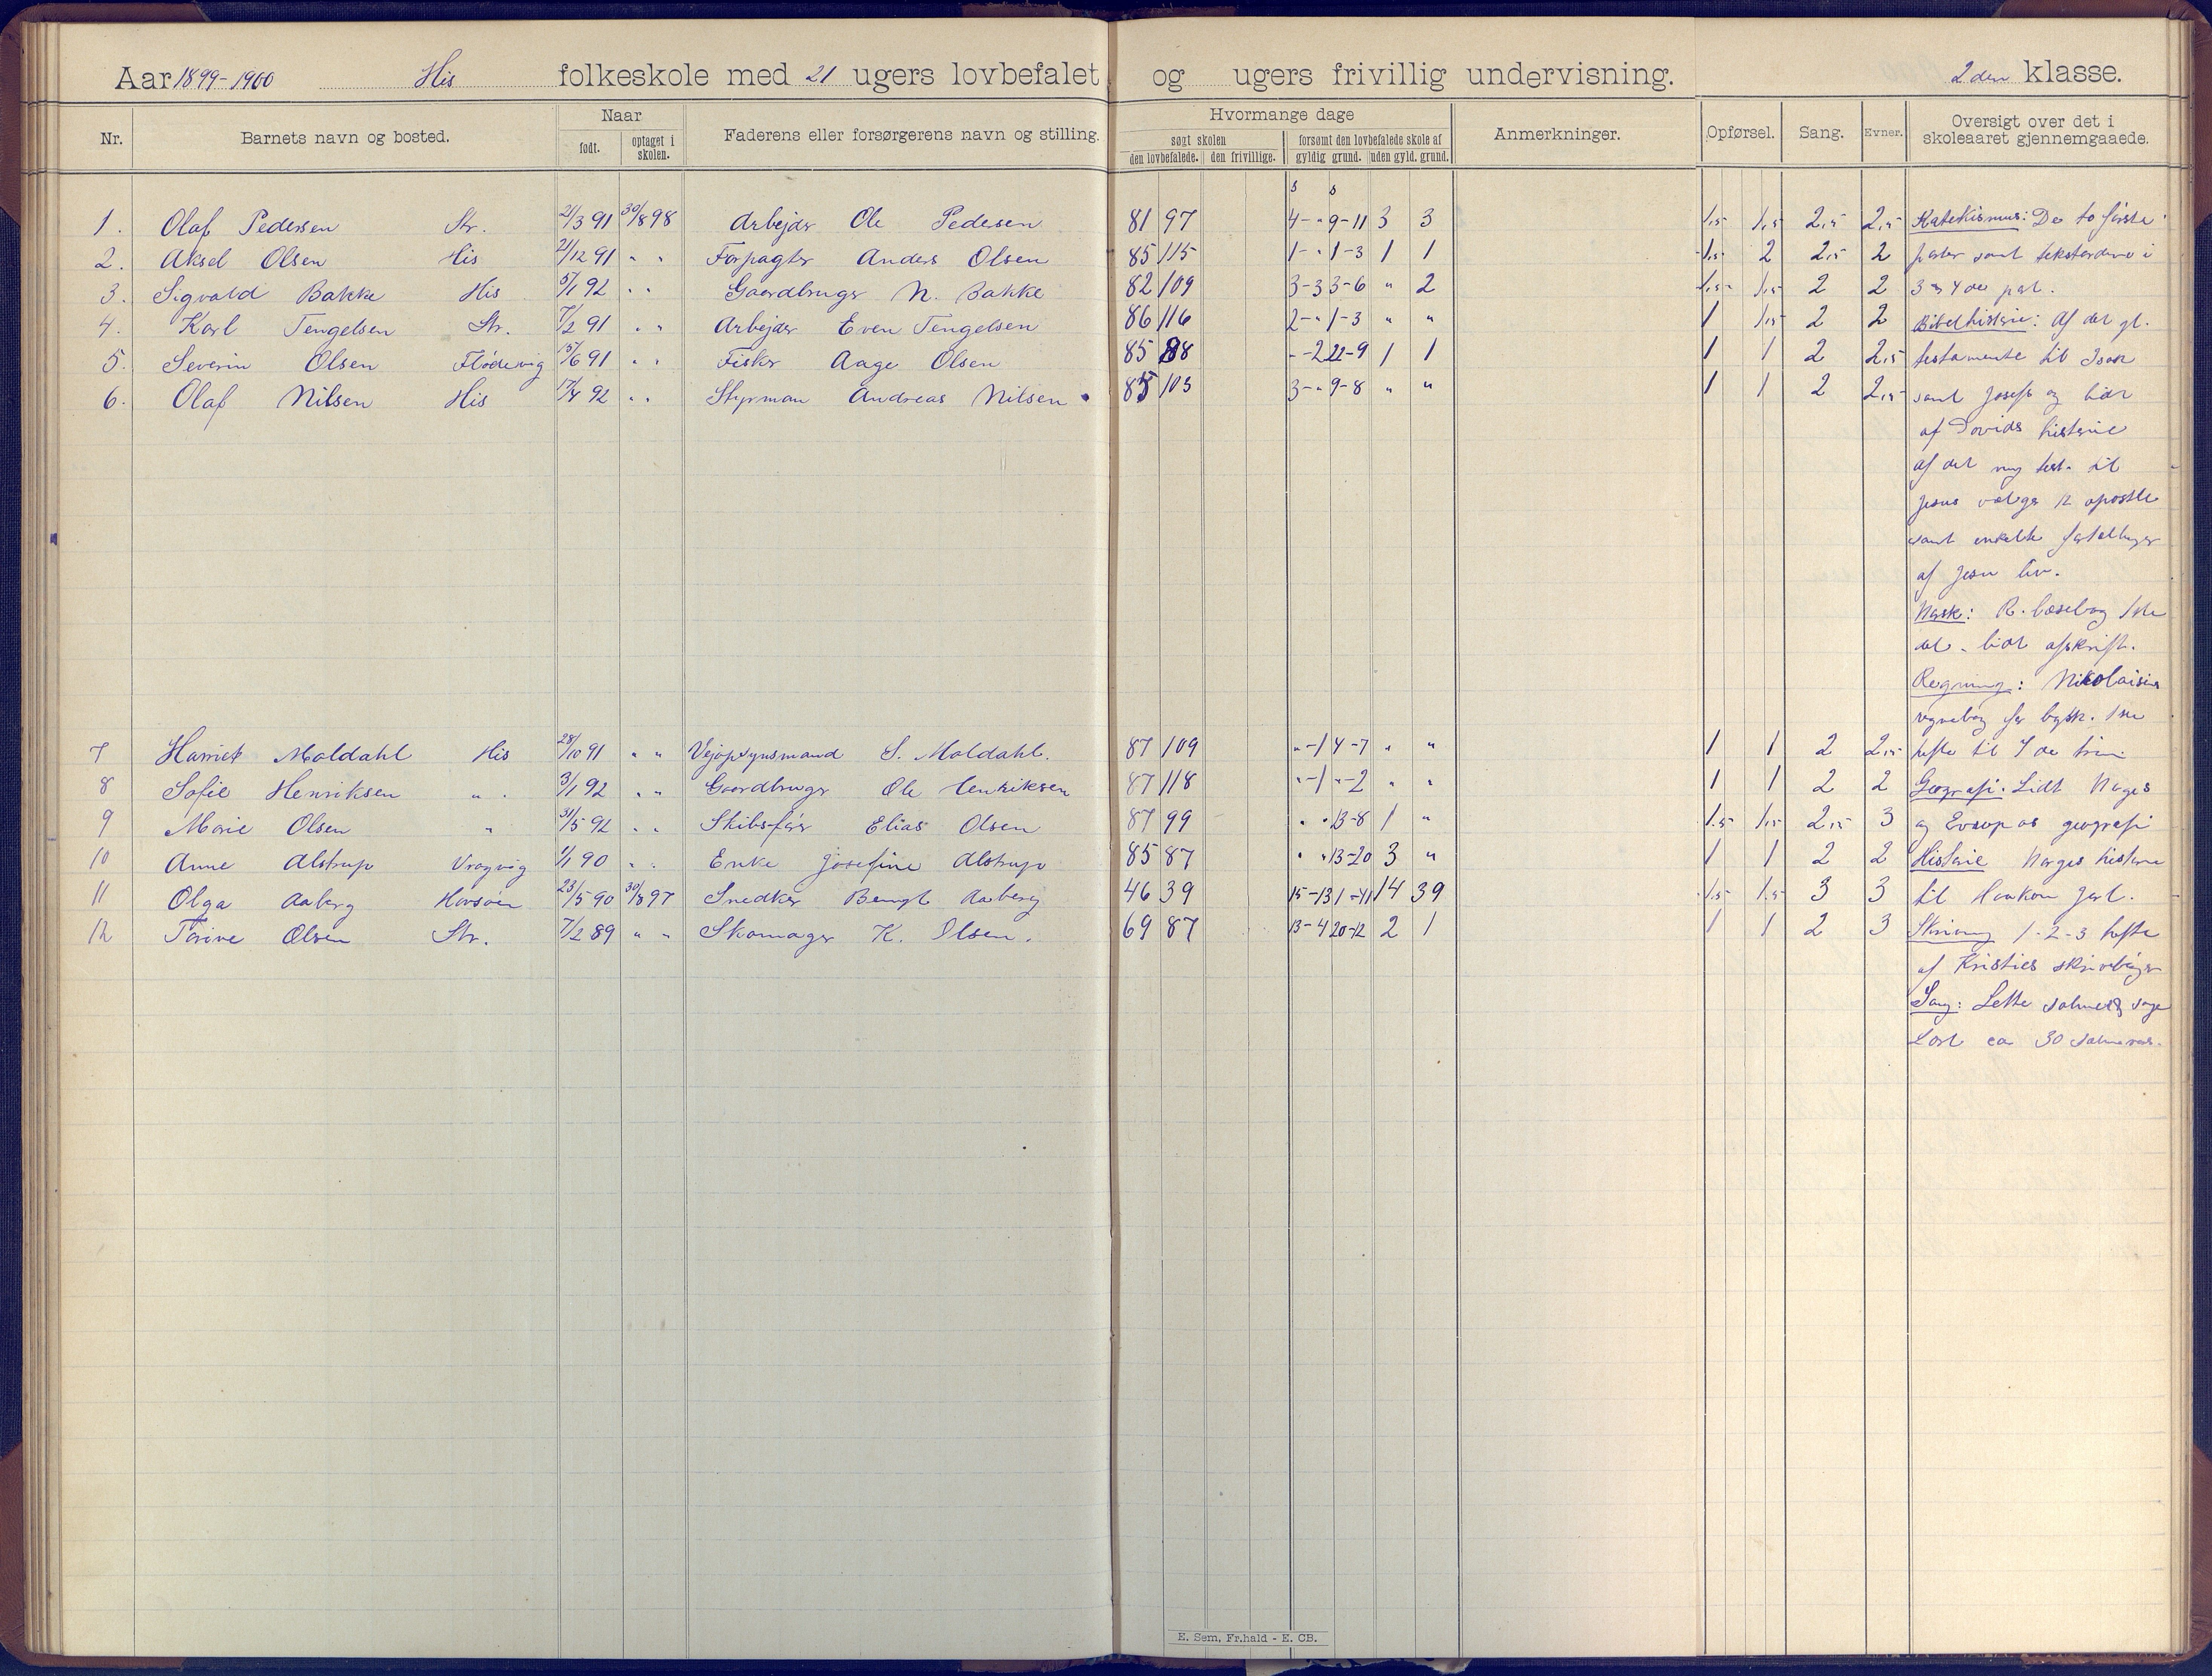 Aar 1899-1900 His folkeskole med 21 ugers lovbefalet og ugers frivillig undervisning. 2den klasse.
Nr. Barnets navn og bosted. Naar født. optaget i skolen. Faderens eller forsørgerens navn og stilling. Hvormange dage søgt skolen den lovbefalede. den frivillige. forsømt den lovbefalede skole af gyldig grund. uden gyld. grund. Anmerkninger. Opførsel. Sang. Evner. Oversigt over det i skoleaaret gjennemgaaede.
s s
1. Olaf Pedersen Str. 21/3 91 30/8 98 Arbejder Ole Pedersen 81 97 4-" 9-11 3 3 1,5 1,5 2,5 2,5 Katekismus: De to første
2. Aksel Olsen His 21/12 91 " " Forpagter Anders Olsen 85 115 1-" 1-3 1 1 1,5 2 2,5 2 parter samt i
3. Sigvald Bakke His 5/1 92 " " Gaardbruger N. Bakke 82 109 3-3 3-6 " 2 1,5 1,5 2 2 3 og 4de part.
4. Karl Tengelsen Str. 7/2 91 " " Arbejder Even Tengelsen 86 116 2-" 1-3 " " 1 1,5 2 2 Bibelhistorie: Af det gl.
5. Severin Olsen Flødevig 15/6 91 " " Fisker Aage Olsen 85 88 "-2 22-9 1 1 1 1 2 2,5 testamente til Isak
6. Olaf Nilsen His 17/4 92 " " Styrman Andreas Nilsen 85 105 3-" 9-8 " " 1 1 2 2,5 samt Josefs og lidt
af Davids historie
af det ny test. til
Jesus vælger 12 apostle
samt enkelte fortællinger
af Jesu liv.
Norsk: R. læsebog 1ste
del. lidt afskrift.
Regning: Nikolaisens
regnebog for bysk. 1ste
7 Harriet Moldahl His 28/10 91 " " Vejopsynsmand S. Moldahl. 87 109 "-1 4-7 " " 1 1 2 2,5 hefte til 4de trin
8 Sofie Henriksen " 3/1 92 " " Gaardbruger Ole Henriksen 87 118 "-1 "-2 " " 1 1 2 2 Geografi. Lidt Norges
9 Marie Olsen " 31/5 92 " " Skibsfør Elias Olsen 87 99 " " 13-8 1 " 1,5 1,5 2,5 3 og Europas geografi
10 Anne Alstrup Vragvig 1/1 90 " " Enke Josefine Alstrup 85 87 " " 13-20 3 " 1 1 2 2 Historie Norges historie
11 Olga Aaberg Havsøen 23/5 90 30/8 97 Snedker Bengt Aaberg 46 39 15-13 1-41 14 39 1,5 1,5 3 3 til Haakon Jarl.
12 Torine Olsen Str. 7/2 89 " " Skomager K. Olsen. 69 87 13-4 20-12 2 1 1 1 2 3 Skrivning 1-2-3 hefte
af Kristies skrivebøger
Sang: Lette salmer og sange
Lært ca 30 salmevers.
E. Sem, Fr.hald - E. CB.